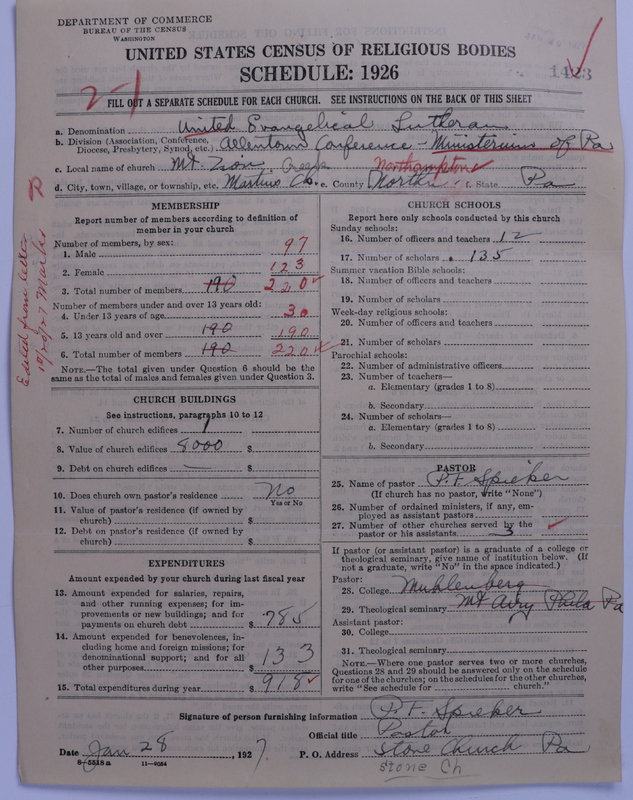 DEPARTMENT OF COMMERCE
BUREAU OF THE CENSUS
WASHINGTON
UNITED STATES CENSUS OF RELIGIOUS BODIES
SCHEDULE: 1926
2-1
FILL OUT A SEPARATE SCHEDULE FOR EACH CHURCH. SEE INSTRUCTIONS ON THE BACK OF THIS SHEET
a. Denomination United Evangelical Lutheran
b. Division (Association, Conference, Diocese, Presbytery, Synod, etc.) Allentown Conference - Ministerium of Pa
c. Local name of church Mt. Zion, Northampton
d. City, town, village, or township, etc. Martins Creek e. County North. f. State Pa
Edited from letter
MEMBERSHIP
Report number of members according to definition of member in your church
Number of members, by sex:
1. Male 97
2. Female 123
3. Total number of members 190 220
Number of members under and over 13 years old:
4. Under 13 years of age 30
5. 13 years old and over 190 190
6. Total number of members 190 220
NOTE.—The total given under Question 6 should be the same as the total of males and females given under Question 3.
CHURCH BUILDINGS
See instructions, paragraphs 10 to 12
7. Number of church edifices 1
8. Value of church edifices 8000 $
9. Debt on church edifices — $
10. Does church own pastor's residence No
Yes or No
11. Value of pastor's residence (if owned by church) $
12. Debt on pastor's residence (if owned by church) $
EXPENDITURES
Amount expended by your church during last fiscal year
13. Amount expended for salaries, repairs, and other running expenses; for improvements or new buildings; and for payments on church debt $ 785
14. Amount expended for benevolences, including home and foreign missions; for denominational support; and for all other purposes $ 133
15. Total expenditures during year $ 918
CHURCH SCHOOLS
Report here only schools conducted by this church
Sunday schools:
16. Number of officers and teachers 12
17. Number of scholars 135
Summer vacation Bible schools:
18. Number of officers and teachers
19. Number of scholars
Week-day religious schools:
20. Number of officers and teachers
21. Number of scholars
Parochial schools:
22. Number of administrative officers
23. Number of teachers—
a. Elementary (grades 1 to 8)
b. Secondary
24. Number of scholars—
a. Elementary (grades 1 to 8)
b. Secondary
PASTOR
25. Name of pastor P. F. Spieker
(If church has no pastor, write "None")
26. Number of ordained ministers, if any, employed as assistant pastors
27. Number of other churches served by the pastor or his assistants 3
If pastor (or assistant pastor) is a graduate of a college or theological seminary, give name of institution below. (If not a graduate, write "No" in the space indicated.)
Pastor:
28. College Muhlenberg
29. Theological seminary Mt Airy Phila Pa
Assistant pastor:
30. College
31. Theological seminary
NOTE.—Where one pastor serves two or more churches, Questions 28 and 29 should be answered only on the schedule for one of the churches; on the schedules for the other churches, write "See schedule for church."
Signature of person furnishing information P. F. Spieker
Official title Pastor
Date Jan 28, 1927 P. O. Address Stone Church Pa
8-5518a 11-9054
Stone Ch